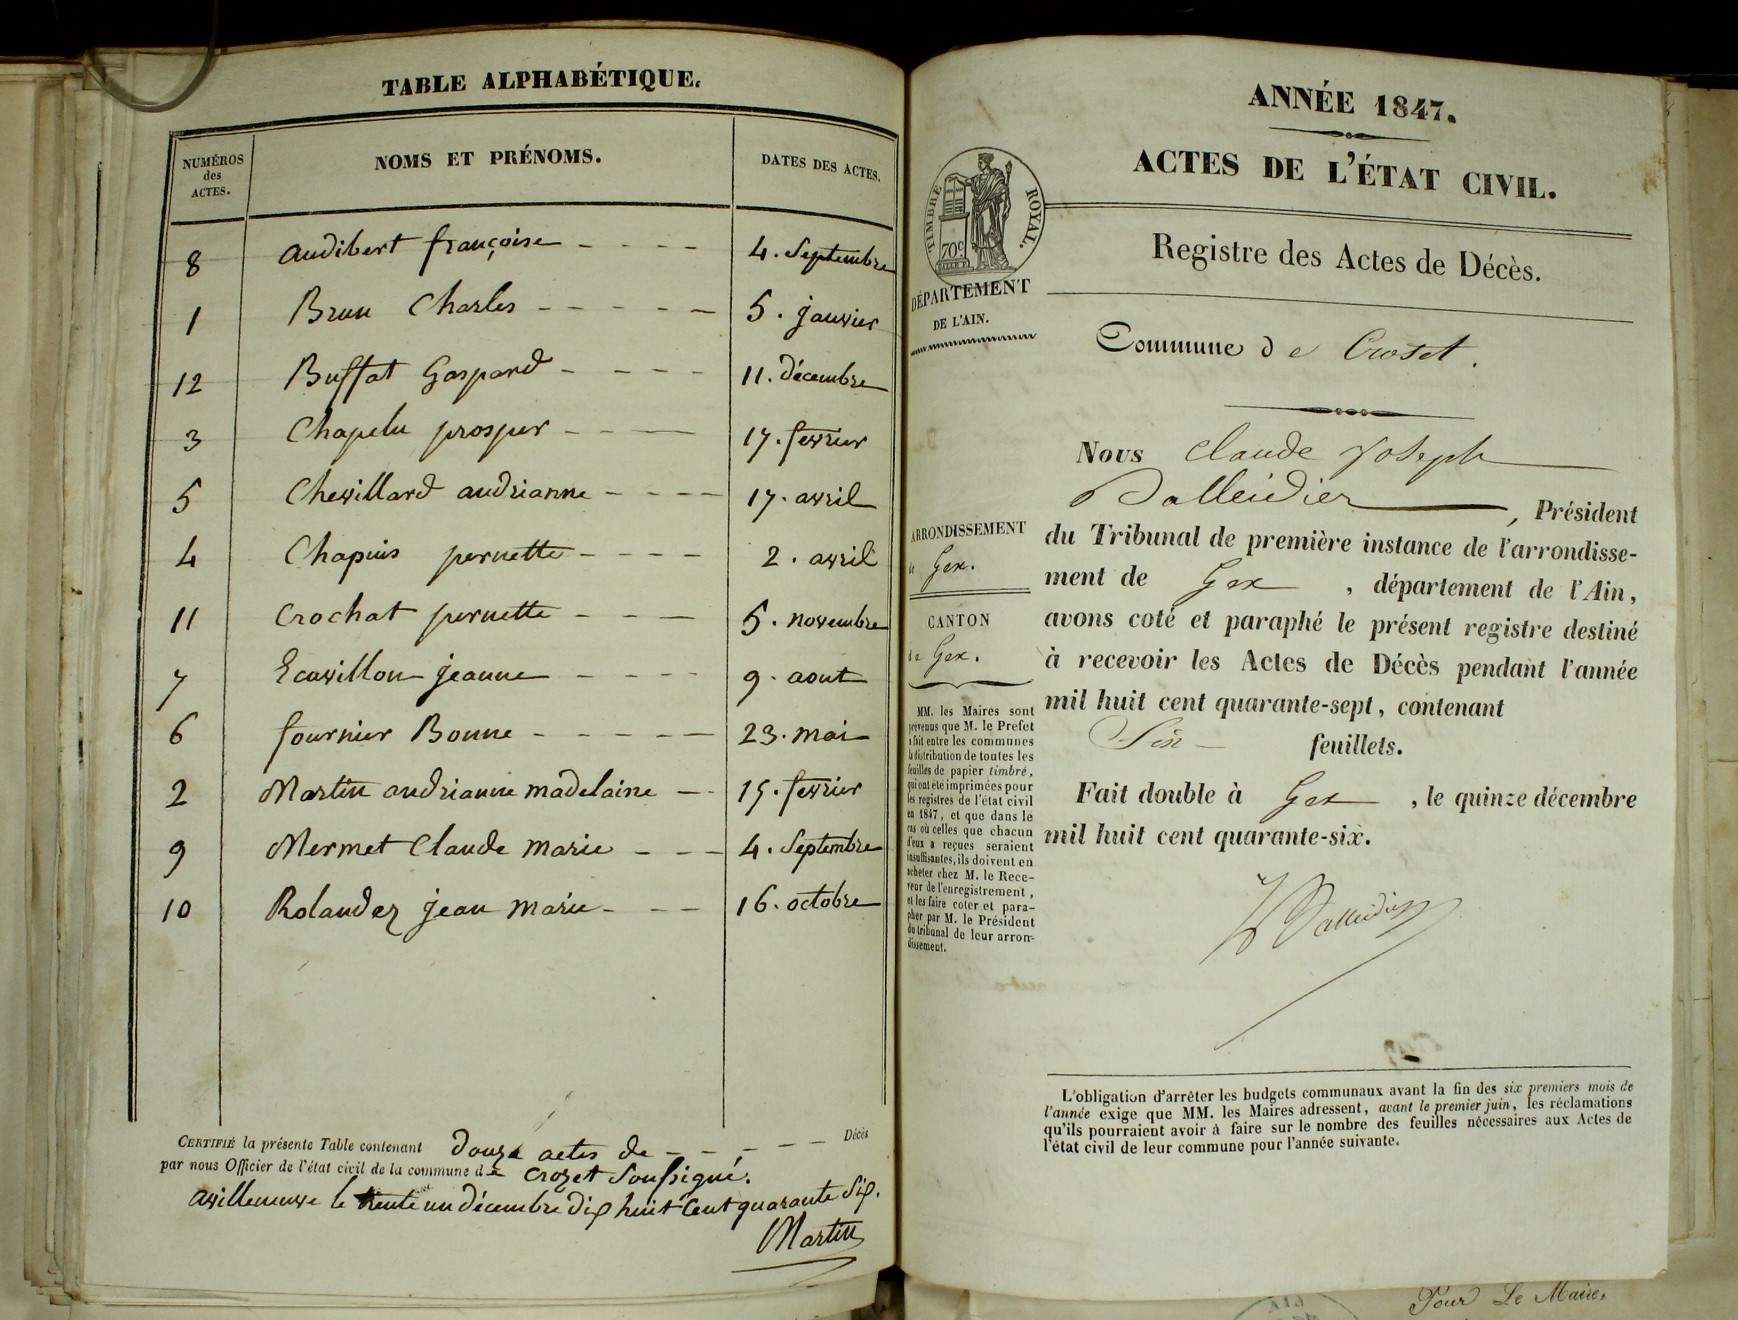 TABLE ALPHABÉTIQUE.
NUMÉROS des ACTES. NOMS ET PRÉNOMS. DATES DES ACTES.
8 audibert françoise - - - - 4. Septembre
1 Brun Charles - - - - - 5. janvier
12 Buffat Gaspard - - - - 11. décembre
3 Chapelu prosper - - - 17. fevrier
5 Chevillard audrianne - - - - 17. avril
4 Chapuis pernette - - - - 2. avril
11 Crochat pernette - - - - 5. novembre
7 Ecavillon jeanne - - - - 9. aout
6 fournier Bonne - - - - - 23. mai
2 Martin andrianne madelaine - - 15. fevrier
9 Mermet Claude marie - - - 4. Septembre
10 Rolandez jean marie - - - 16. octobre
CERTIFIÉ la présente Table contenant douze actes de - - - - Décès
par nous Officier de l'état civil de la commune de crozet Soussigné.
avilleneuve le trente un décembre dix huit Cent quarante Six.
Martin
ANNÉE 1847.
ACTES DE L'ÉTAT CIVIL.
TIMBRE ROYAL.
70c
DÉPARTEMENT
DE L'AIN.
Registre des Actes de Décès.
Commune de Croset.
ARRONDISSEMENT
de Gex.
CANTON
de Gex.
MM. les Maires sont
prévenus que M. le Prefet
a fait entre les communes
la distribution de toutes les
feuilles de papier timbré,
qui ont été imprimées pour
les registres de l'état civil
en 1847, et que dans le
cas où celles que chacun
d'eux a reçues seraient
insuffisantes, ils doivent en
acheter chez M. le Rece-
veur de l'enregistrement,
et les faire coter et para-
pher par M. le Président
du tribunal de leur arron-
dissement.
Nous Claude Joseph
Dalleidier, Président
du Tribunal de première instance de l'arrondisse-
ment de Gex, département de l'Ain,
avons coté et paraphé le présent registre destiné
à recevoir les Actes de Décès pendant l'année
mil huit cent quarante-sept, contenant
Six - feuillets.
Fait double à Gex, le quinze décembre
mil huit cent quarante-six.
Dalleidier
L'obligation d'arrêter les budgets communaux avant la fin des six premiers mois de
l'année exige que MM. les Maires adressent, avant le premier juin, les réclamations
qu'ils pourraient avoir à faire sur le nombre des feuilles nécessaires aux Actes de
l'état civil de leur commune pour l'année suivante.
Pour Le Maire,